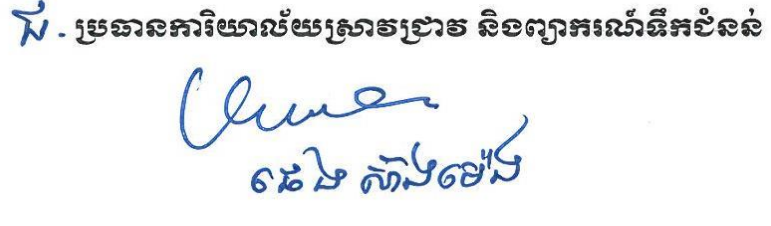 ជ. ប្រធានការិយាល័យស្រាវជ្រាវ និងព្យាករណ៍ទឹកជំនន់
ឆេង ស៊ាងម៉េង